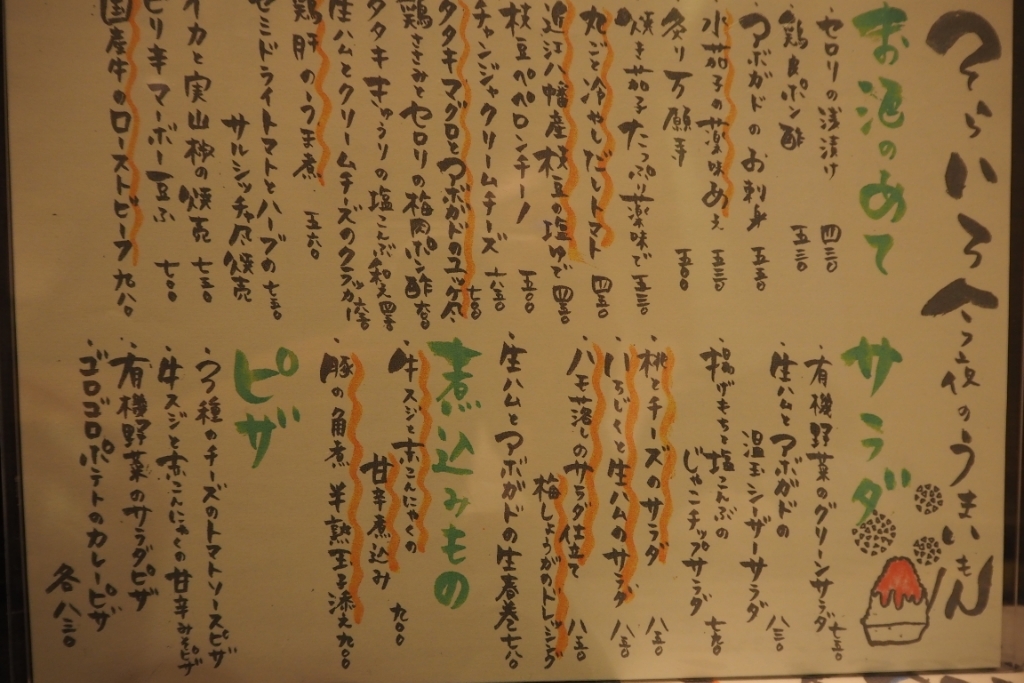 そらいろ 今夜のうまいもん
お酒のあて
セロリの浅漬け 四三〇
鶏皮ポン酢 五三〇
アボガドのお刺身 五五〇
水茄子の薬味あえ 五三〇
炙り万願寺 五〇〇
焼き茄子たっぷり薬味で 五三〇
丸ごと冷やしだしトマト 四五〇
近江八幡産枝豆の塩ゆで 四五〇
枝豆ペペロンチーノ 五〇〇
チャンジャクリームチーズ 六五〇
タタキマグロとアボガドのユッケ風 七〇〇
鶏ささみとセロリの梅肉ポン酢 六〇〇
タタキきゅうりの塩こんぶ和え 四五〇
生ハムとクリームチーズのクラッカー 六五〇
鶏肝のうま煮 五六〇
セミドライトマトとハーブの
サルシッチャ風焼売 七五〇
イカと実山椒の焼売 七五〇
ピリ辛マーボー豆ふ 七〇〇
国産牛のローストビーフ 九八〇
サラダ
・有機野菜のグリーンサラダ 七五〇
・生ハムとアボガドの
温玉シーザーサラダ 八三〇
・揚げもちと塩こんぶの
じゃこチップサラダ 七五〇
・桃とチーズのサラダ 八五〇
・いちじくと生ハムのサラダ 八五〇
・ハモ落しのサラダ仕立て
梅しょうがのドレッシング 八五〇
・生ハムとアボガドの生春巻 七八〇
煮込みもの
・牛スジと赤こんにゃくの
甘辛煮込み 九〇〇
・豚の角煮 半熟玉子添え 九〇〇
ピザ
・4種のチーズのトマトソースピザ
・牛スジと赤こんにゃくの甘辛みそピザ
・有機野菜のサラダピザ
・ゴロゴロポテトのカレーピザ
各 八三〇